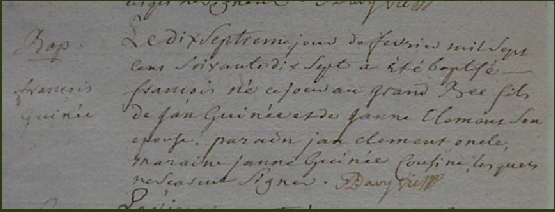 Bap.
françois
Guinée
Le dix Septieme jour de fevrier mil Sept
cens Soixante dix Sept a été baptisé
francois né ce jour au grand Bec fils
de jàn Guinée et de janne Clement Son
epouse. parain jan clement oncle,
maraine janne Guinée Cousine, lesquels
ne scavent Signer.